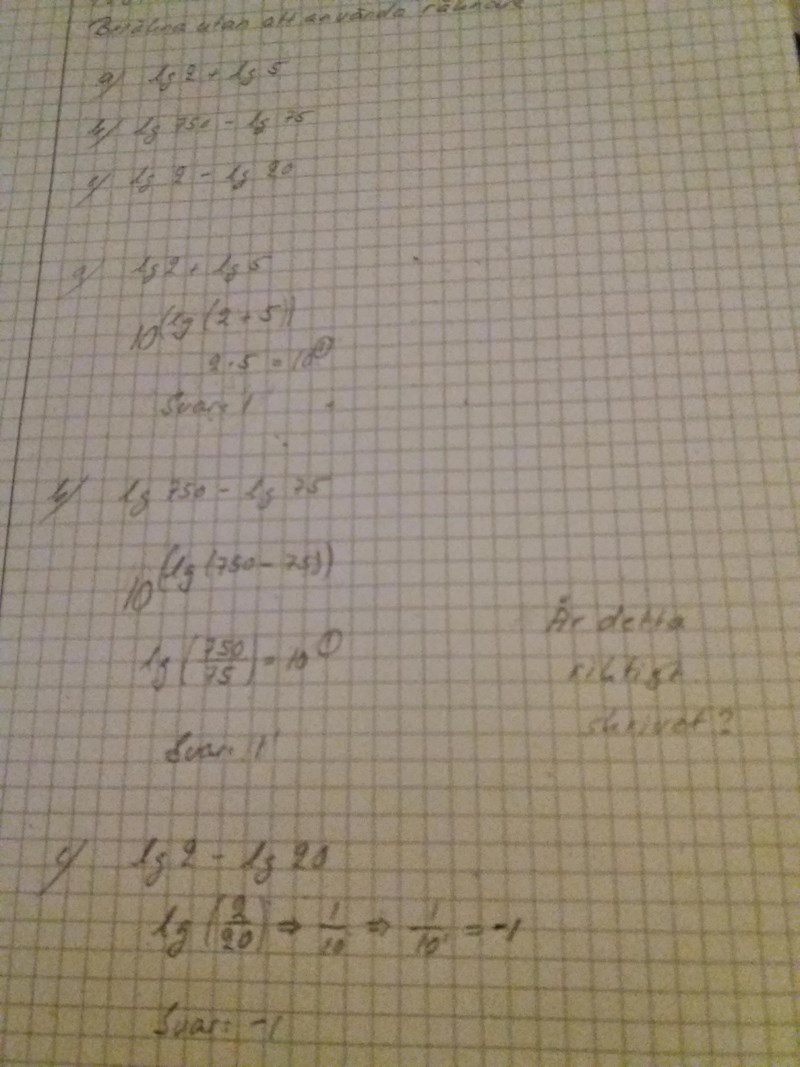 Beräkna utan att använda räknare
a) lg 2 + lg 5
b) lg 750 - lg 75
c) lg 2 - lg 20
a) lg 2 + lg 5
10^(lg (2 + 5))
2 · 5 = 10^1
Svar: 1
b) lg 750 - lg 75
10^(lg (750 - 75))
lg (750/75) = 10^1
Svar: 1
Är detta
riktigt
skrivet?
c) lg 2 - lg 20
lg (2/20) ⇒ 1/10 ⇒ 1/10^1 = -1
Svar: -1